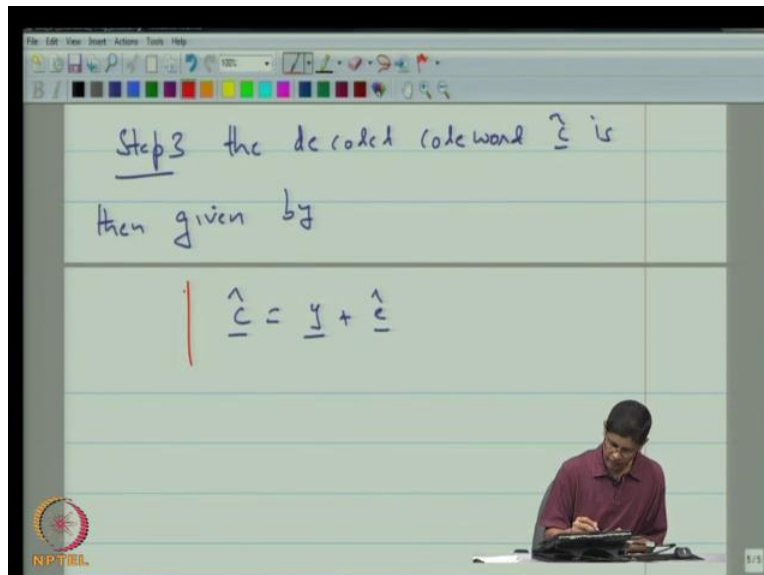 File Edit View Insert Actions Tools Help
100%
B I
Step 3 the decoded codeword ĉ is
then given by
ĉ = y + ê
NPTEL
5/5